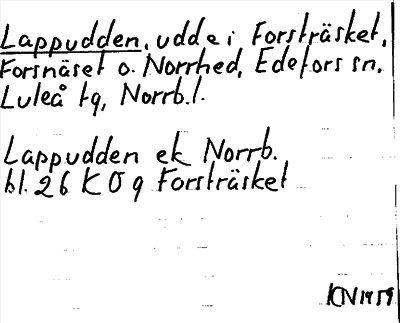 Lappudden, udde i Forsträsket,
Forsnäset o. Norrhed, Edefors sn,
Luleå tg, Norrb.l.
Lappudden ek Norrb.
bl. 26 K 0 g Forsträsket
KN 1959